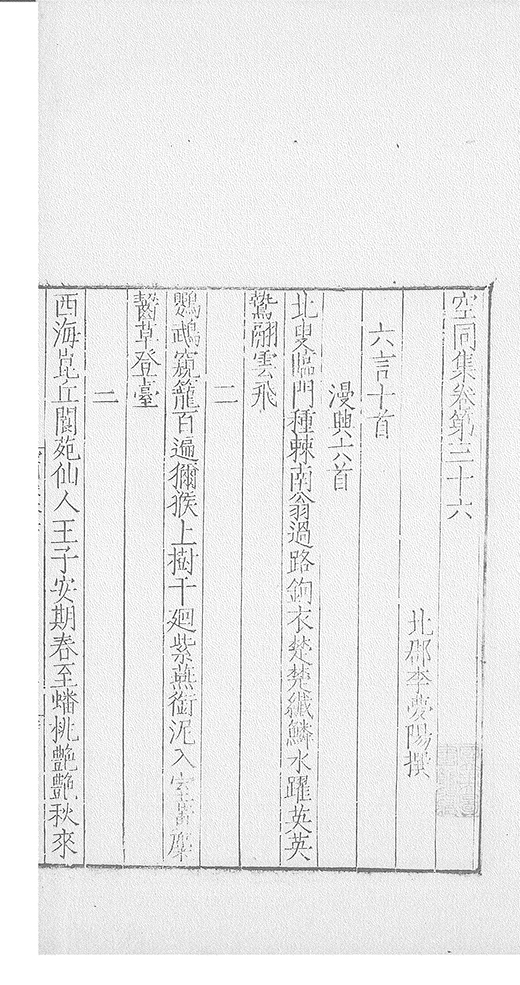 空同集卷第三十六
北郡李夢陽撰
六言十首
漫興六首
北叟臨門種棘南翁過路鉤衣楚楚纖鱗水躍英英
鷙翮雲飛
二
鸚鵡窺籠百遍獼猴上樹千廻紫燕銜泥入室
草登臺
西海崑丘閬苑仙人王子安期春至蟠桃艶艶秋來